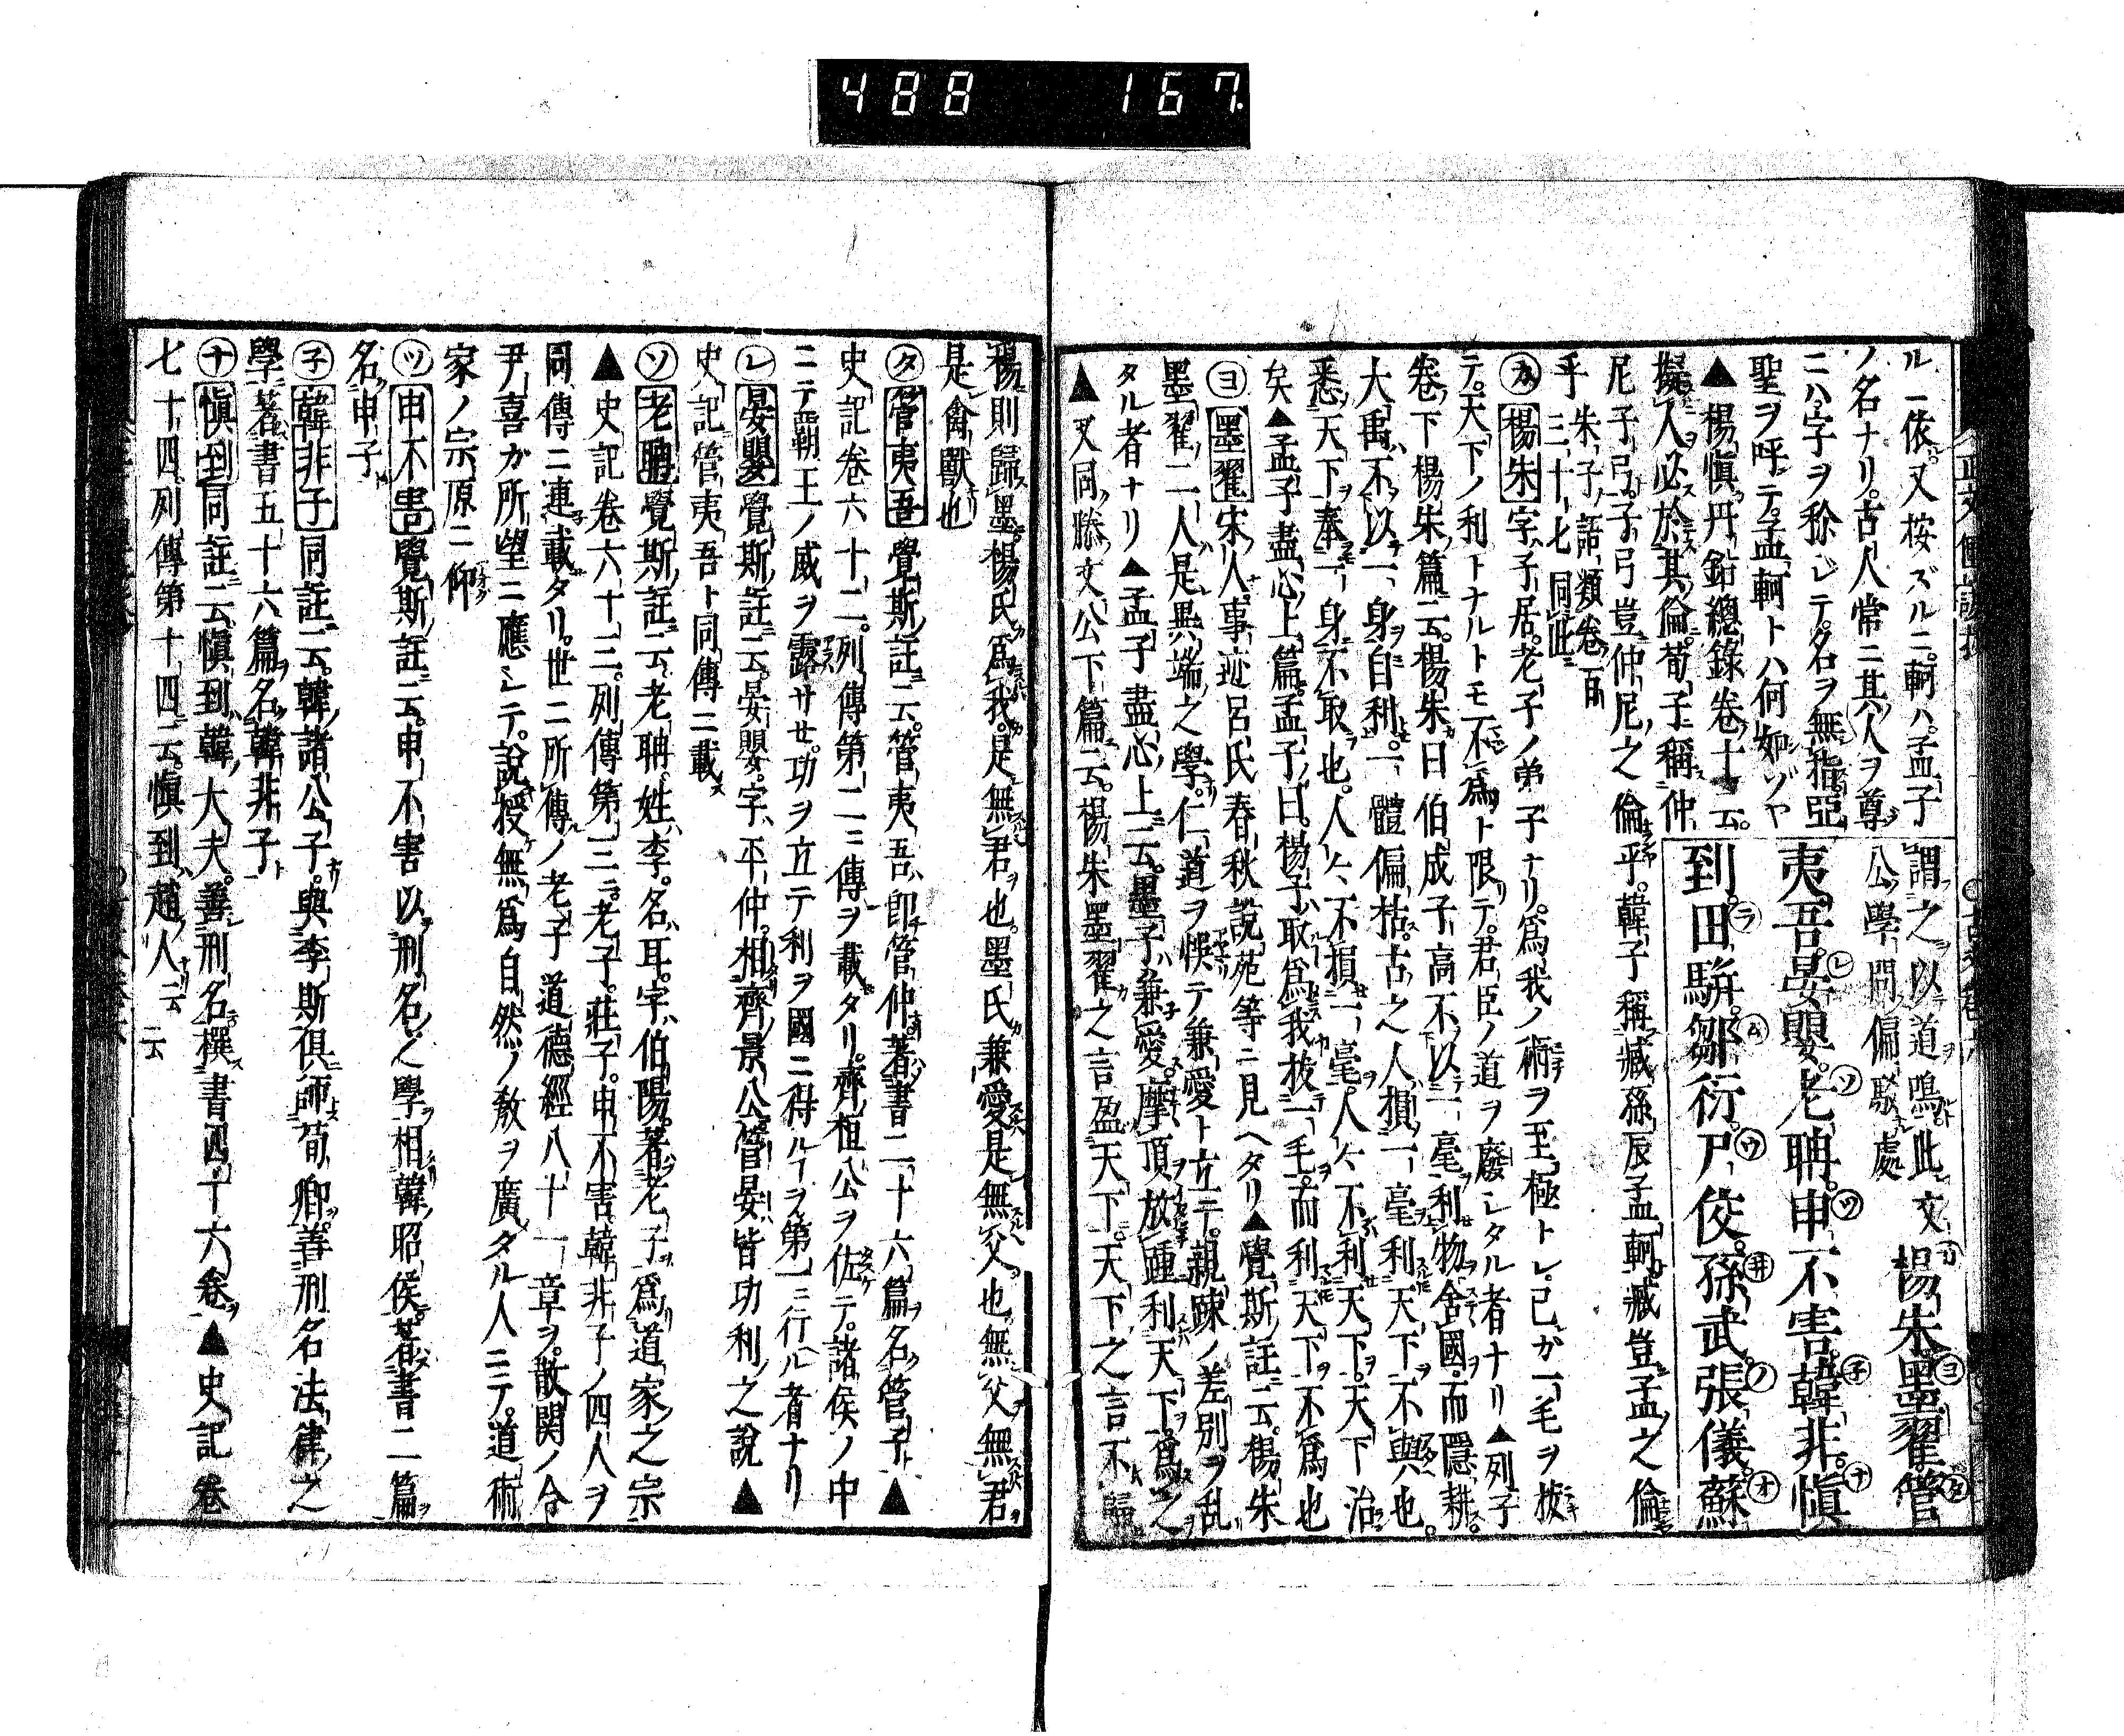 488 167
ル一依。又按ズルニ。軻ハ。孟子
ノ名ナリ。古人常ニ其人ヲ尊
ニハ。字ヲ称シテ。名ヲ無指。亞
聖ヲ呼テ。孟軻トハ何如ゾヤ
▲楊愼丹鉛總錄卷十云。
擬人必於其倫。荀子稱仲
尼子弓。子弓豈仲尼之倫乎。韓子稱臧孫辰孟軻。臧豈孟之倫
乎 朱子語類卷百三十七同此
謂之以道鳴此文
公學問偏駁處
楊朱墨翟管
夷吾。晏嬰。老聃。申不害。韓非。愼
到。田駢。鄒衍。尸佼。孫武。張儀。蘇
カ楊朱字子居。老子ノ弟子ナリ。爲我ノ術ヲ至極トシ。己ガ一毛ヲ拔
テ。天下ノ利トナルトモ不爲ト限テ。君臣ノ道ヲ廢シタル者ナリ▲列子
卷下楊朱篇云。楊朱曰伯成子高不以一毫利物。舍國而隱耕。
大禹不以一身自利。一體偏枯。古之人損一毫利天下不與也。
悉天下奉一身不取也。人人不損一毫。人人不利天下。天下治
矣▲孟子盡心上篇。孟子曰。楊子取爲我。拔一毛而利天下不爲也
ヨ墨翟宋人。事迹呂氏春秋說苑等ニ見ヘタリ▲覺斯註云。楊朱
墨翟二人。是異端之學。仁道ヲ悞テ兼愛ト立テ。親踈ノ差別ヲ乱
タル者ナリ▲孟子盡心上云。墨子兼愛。摩頂放踵利天下。爲之
▲又同滕文公下篇云。楊朱墨翟之言盈天下。天下之言不歸
楊則歸墨。楊氏爲我。是無君也。墨氏兼愛是無父也。無父無君
是禽獸也
タ管夷吾覺斯註云。管夷吾。即管仲。著書二十六篇名管子▲
史記卷六十二。列傳第二ニ傳ヲ載タリ。齊桓公ヲ佐テ。諸侯ノ中
ニテ覇王ノ威ヲ露サセ。功ヲ立テ利ヲ國ニ得ルヿヲ第一ニ行ル者ナリ
レ晏嬰覺斯註云。晏嬰。字平仲。相齊景公。管晏皆功利之說▲
史記管夷吾ト同傳ニ載
ソ老聃覺斯註云。老聃。姓李。名耳。字伯陽。著老子。爲道家之宗
▲史記卷六十三。列傳第三ニ。老子。莊子。申不害。韓非子ノ四人ヲ
同傳ニ連載タリ。世ニ所傳ノ老子道德經八十一章ヲ。散関ノ令
尹喜ガ所望ニ應シテ。說授無爲自然ノ教ヲ廣タル人ニテ。道術
家ノ宗原ニ仰
ツ申不害覺斯註云。申不害以刑名之學相韓昭侯。著書二篇
名申子
子韓非子同註云。韓諸公子。與李斯俱師荀卿。善刑名法律之
學。著書五十六篇。名韓非子
ナ愼到同註云。愼到韓大夫。善刑名。撰書四十六卷▲史記卷
七十四列傳第十四云。愼到趙人云云